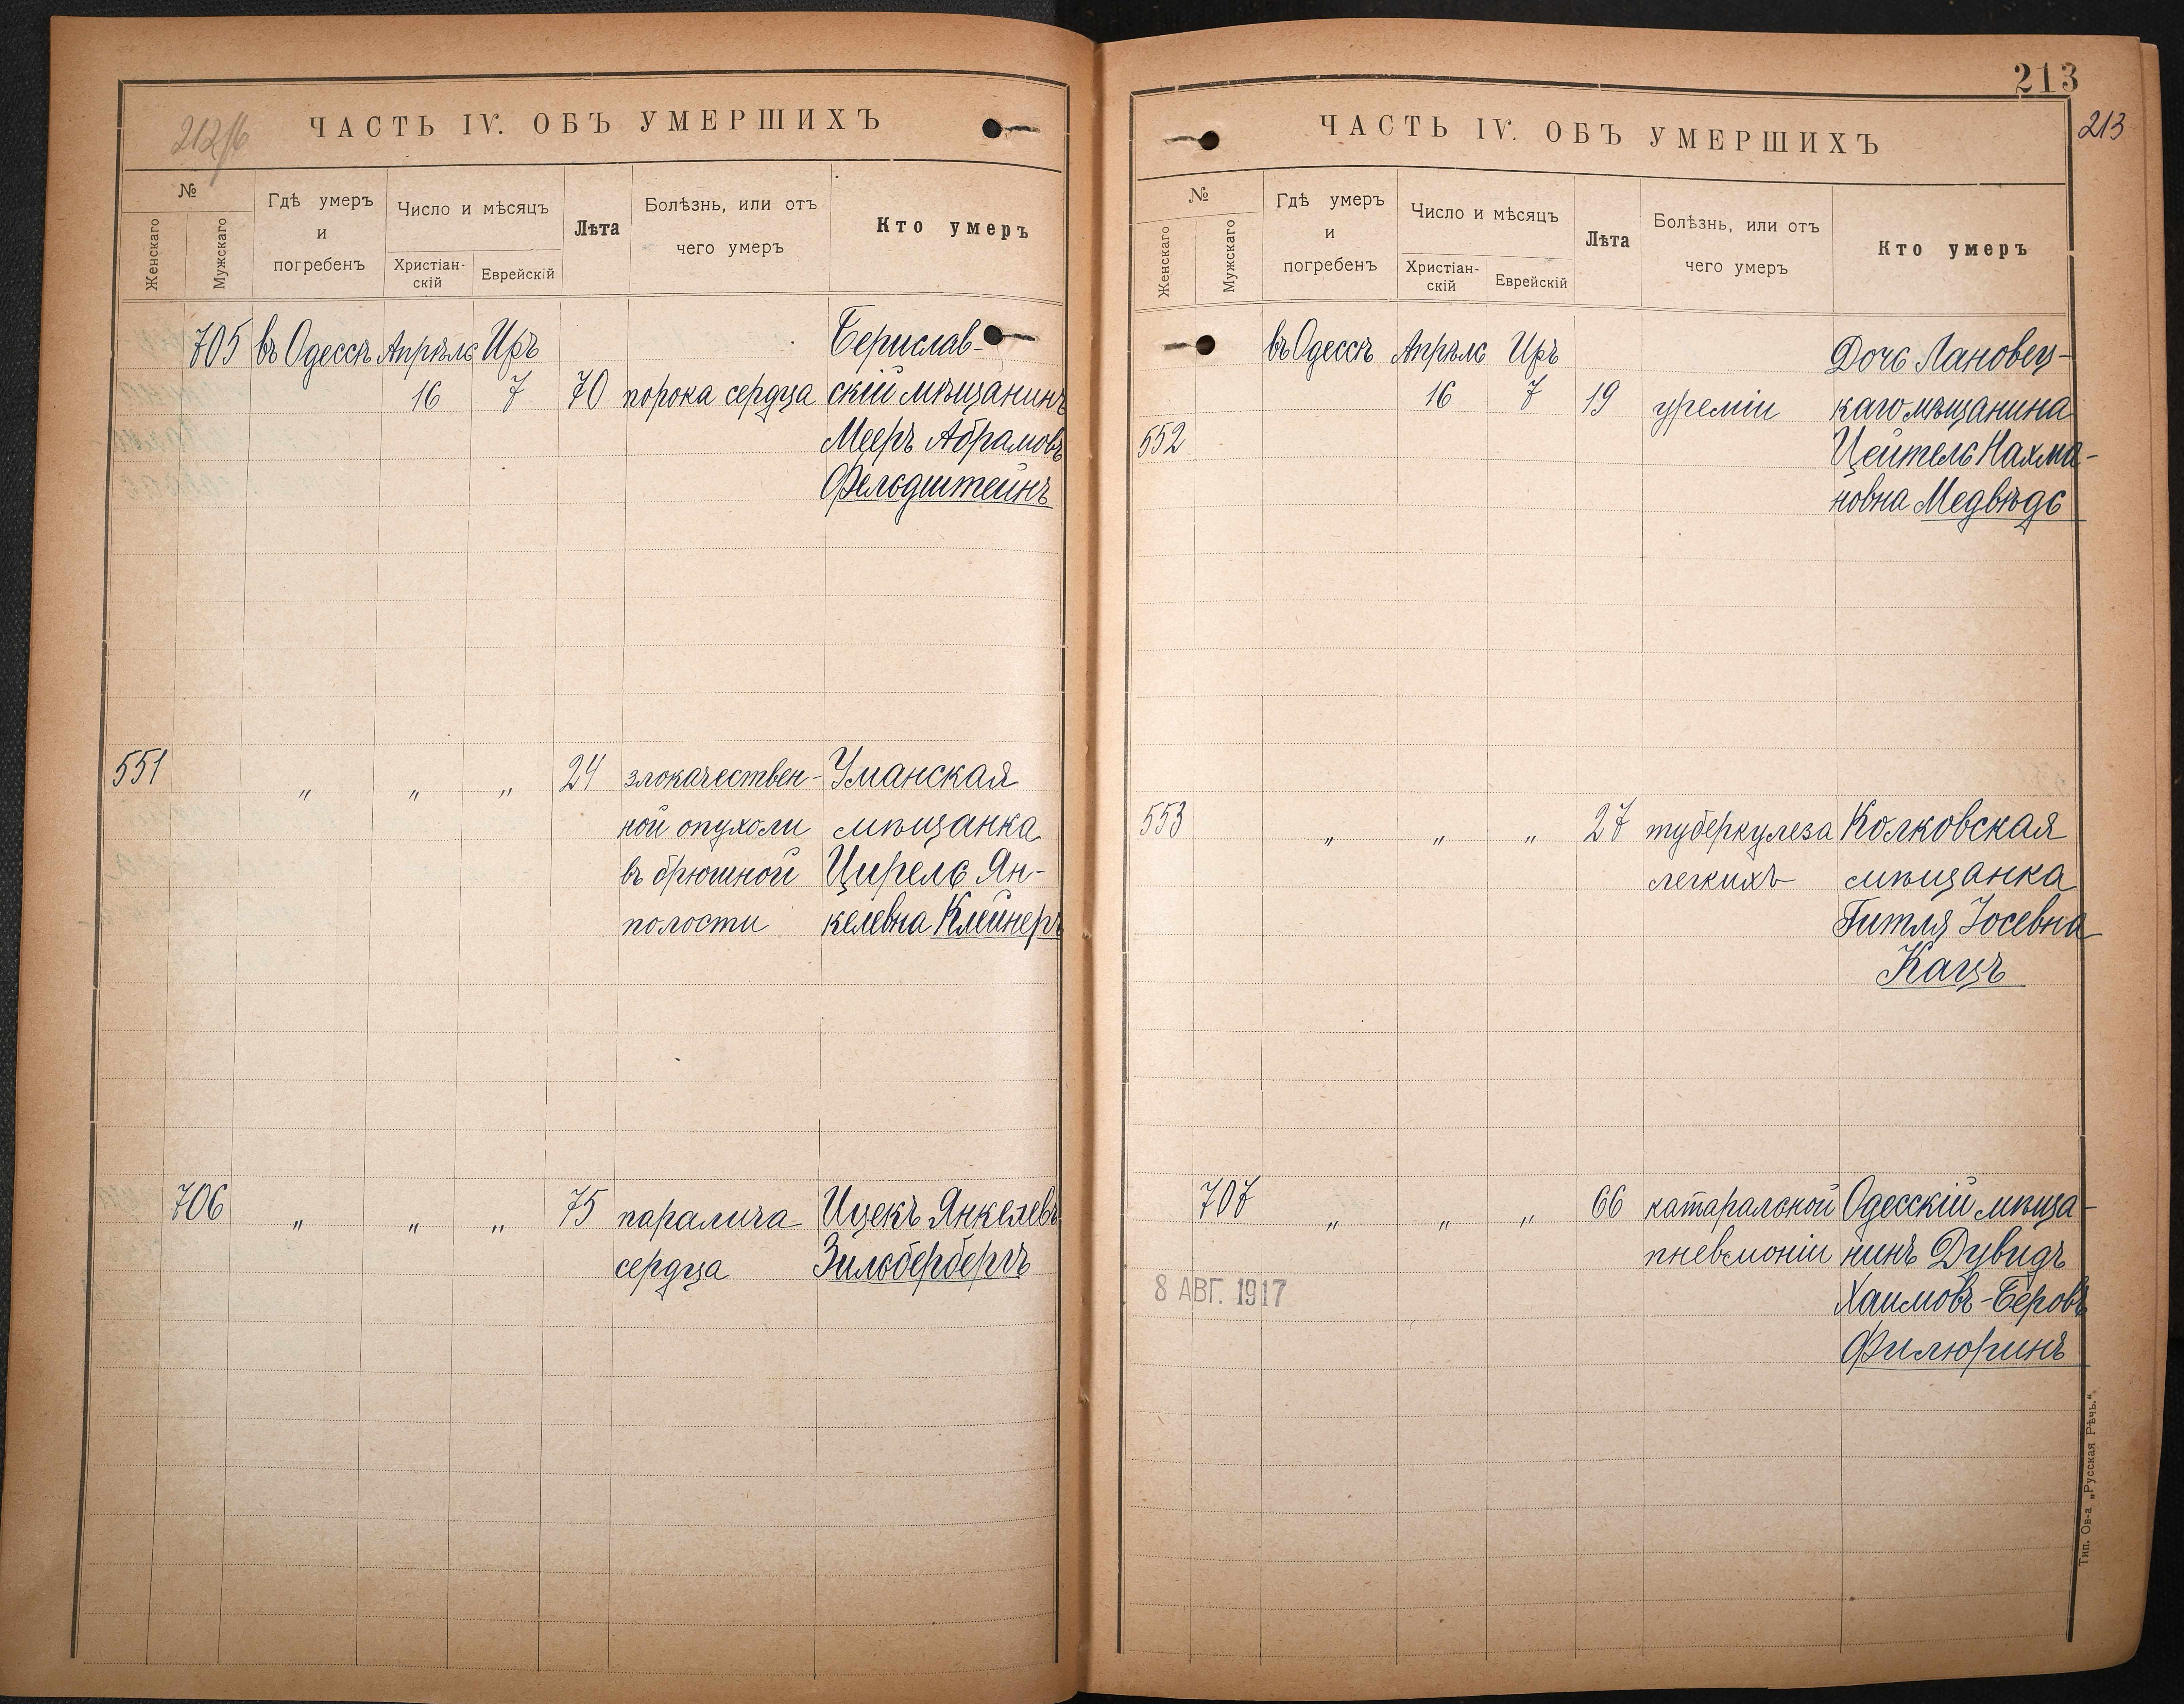 212/б
ЧАСТЬ IV. ОБЪ УМЕРШИХЪ
№
Женскаго
Мужскаго
Гдѣ умеръ
и
погребенъ
Число и мѣсяцъ
Христіан-
скій
Еврейскій
Лѣта
Болѣзнь, или отъ
чего умеръ
Кто умеръ
705 въ Одессѣ Апрѣль Иръ Берислав-
16 7 70 порока сердца скій мѣщанинъ
Мееръ Абрамовъ
Фельдштейнъ
551 " " " 24 злокачествен- Уманская
ной опухоли мѣщанка
въ брюшной Цирель Ян-
полости келевна Клейнеръ
706 " " " 75 паралича Ицекъ Янкелевъ
сердца Зильбербергъ
213
213
ЧАСТЬ IV. ОБЪ УМЕРШИХЪ
№
Женскаго
Мужскаго
Гдѣ умеръ
и
погребенъ
Число и мѣсяцъ
Христіан-
скій
Еврейскій
Лѣта
Болѣзнь, или отъ
чего умеръ
Кто умеръ
въ Одессѣ Апрѣль Иръ Дочь Лановец-
16 7 19 уреміи каго мѣщанина
552 Цейтель Нахма-
новна Медвѣдь
553 " " " 27 туберкулеза Колковская
легкихъ мѣщанка
Гитля Іосевна
Кацъ
707 " " " 66 катаральной Одесскій мѣща-
пневмоніи нинъ Дувидъ
8 АВГ. 1917 Хаимовъ-Беровъ
Филюринъ
Тип. Ов-а „Русская Рѣчь."